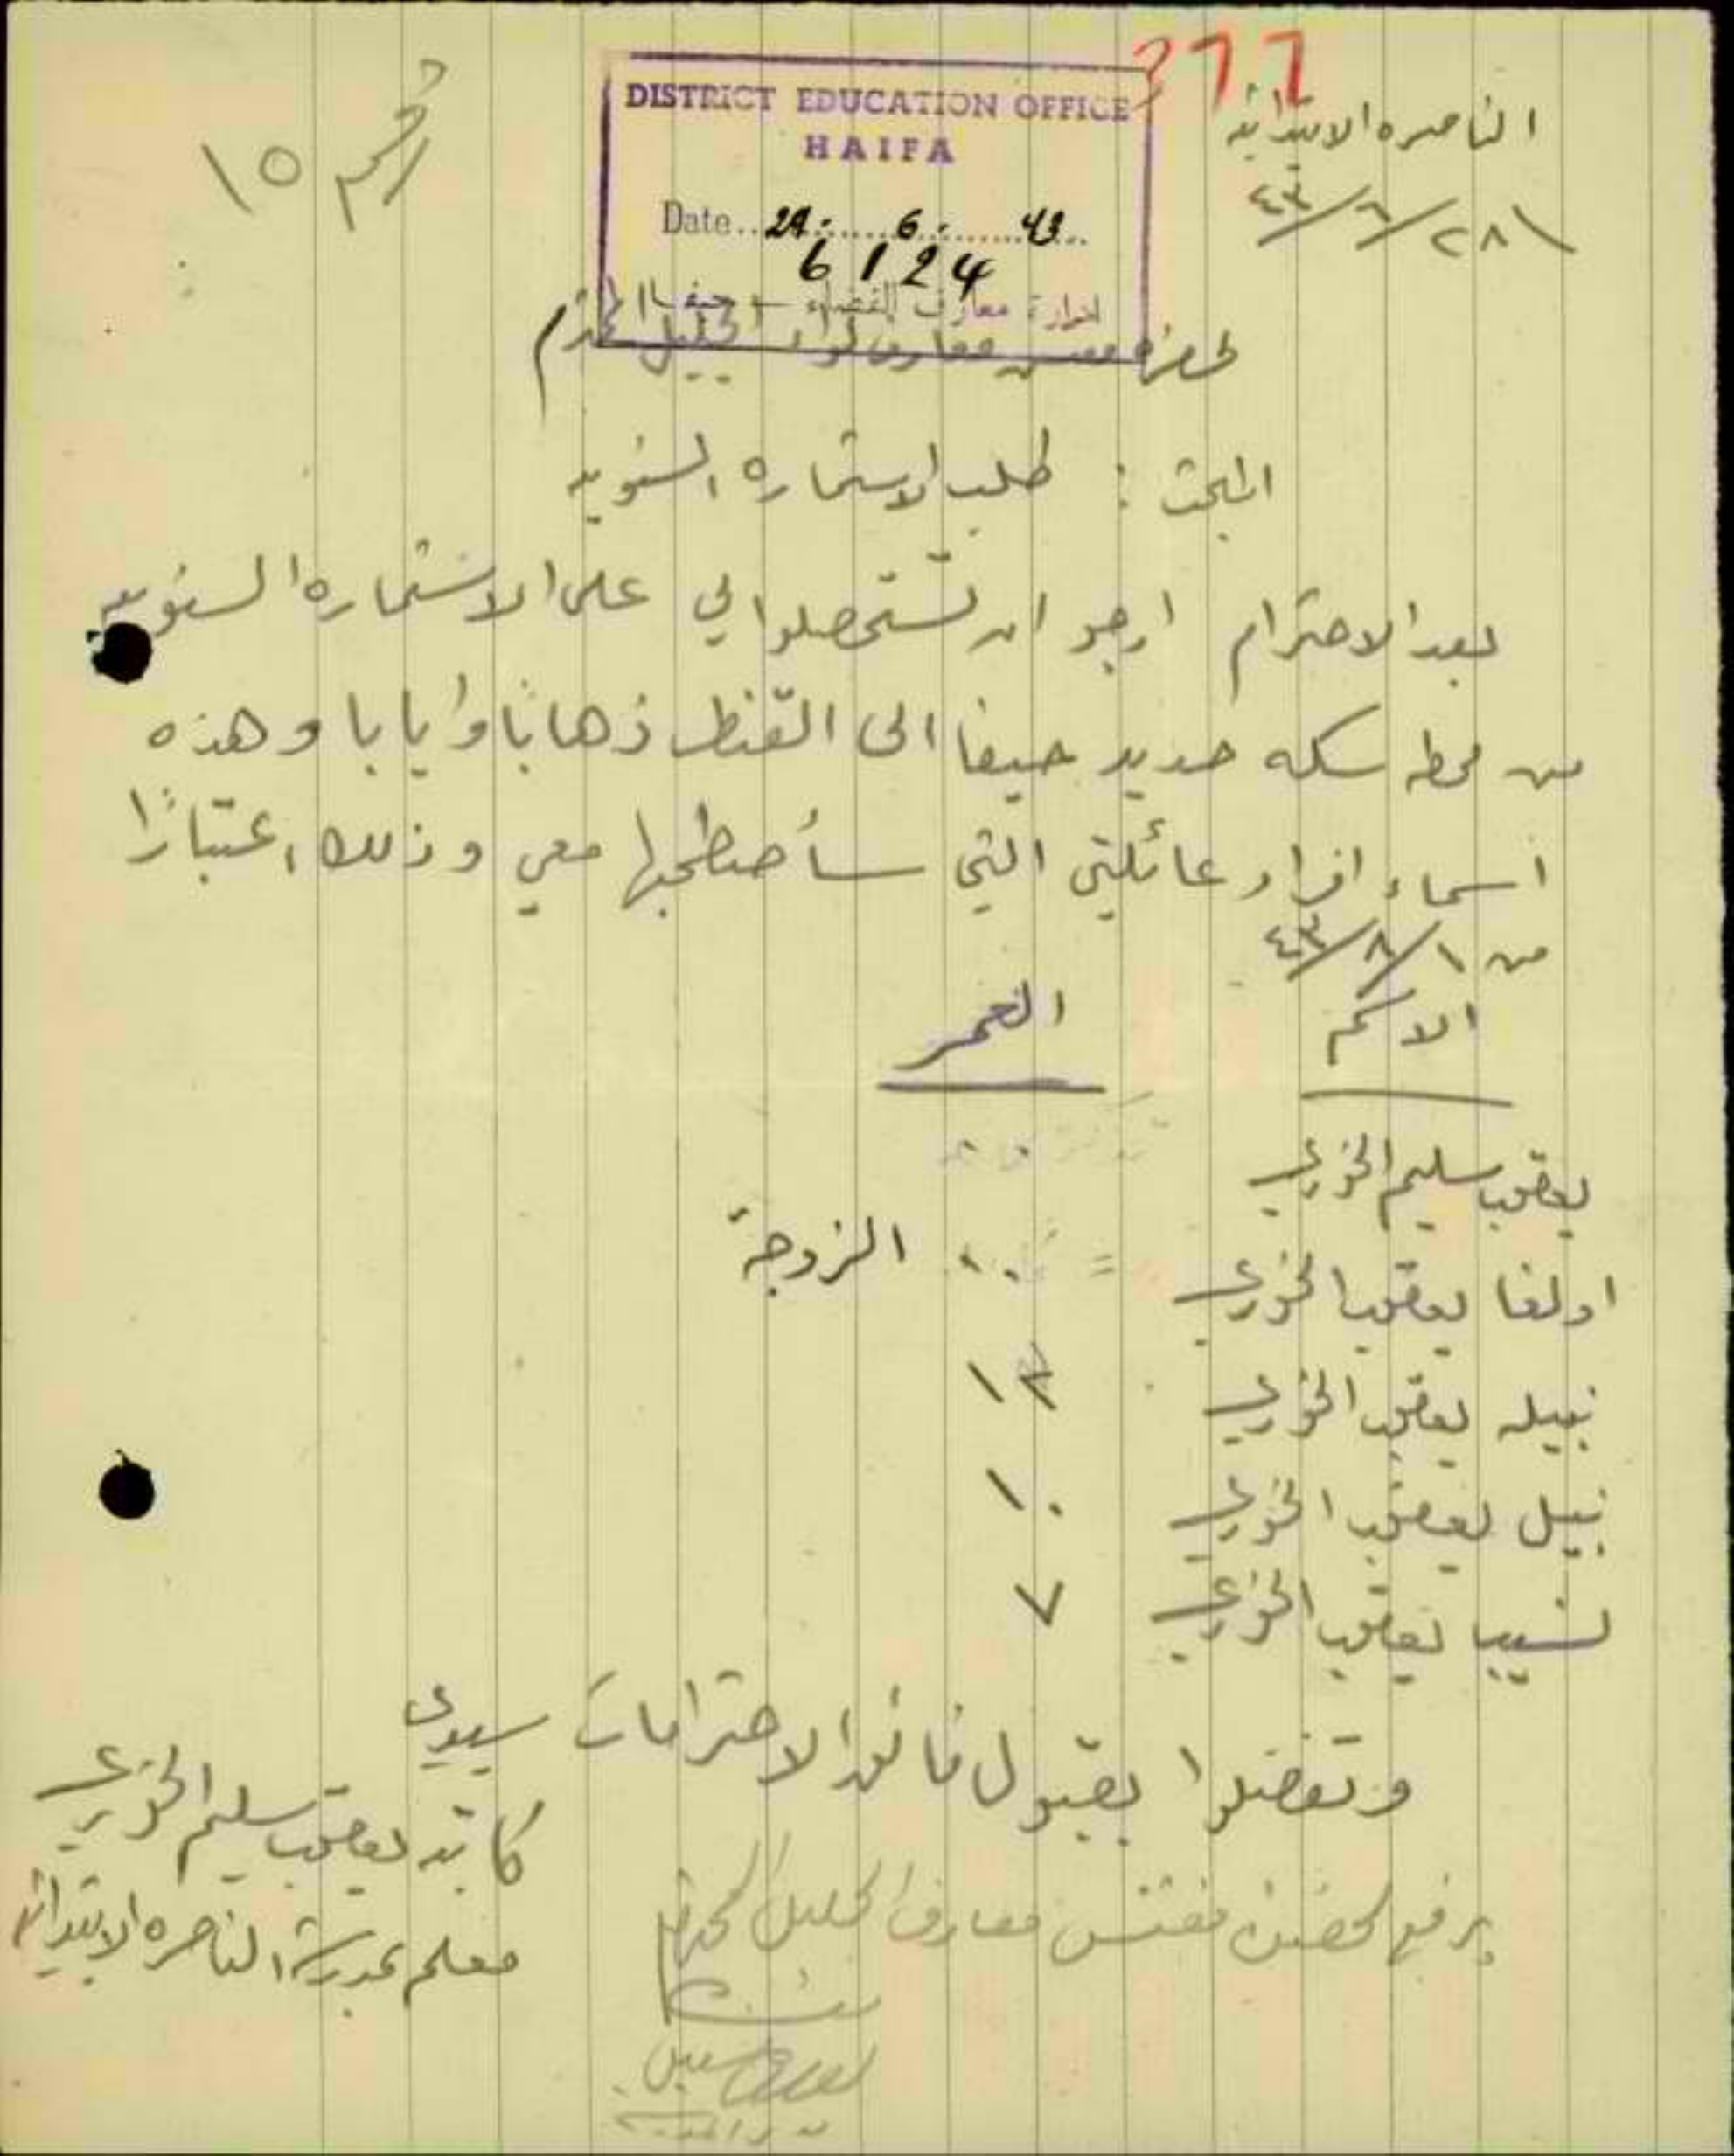 377
الناصره الابتدائيه
٢٨/٦/٤٣
رقم ١٥
DISTRICT EDUCATION OFFICE
HAIFA
Date.. 29. 6. 43
6124
ادارة معارف القضاء - حيفا
لحضرة مفتش معارف لواء الجليل المحترم
المبحث : طلب الاستماره السنويه
بعد الاحترام ارجو ان تستحصلوا لي على الاستماره السنويه
من محطه سكه حديد حيفا الى القنطره ذهابًا وايابا وهذه
اسماء افراد عائلتي التي سأصطحبها معي وذلك اعتبارًا
من ١/٨/٤٣
الاسم العمر
يعقوب سليم الخوري
اولغا يعقوب الخوري = الزوجة
نبيله يعقوب الخوري ١٢
نبيل يعقوب الخوري ١٠
نسيب يعقوب الخوري ٧
وتفضلوا بقبول فائق الاحترامات سيدي
كاتبه يعقوب سليم الخوري
معلم بمدرسة الناصره الابتدائيه
يرفع لحضرة مفتش معارف الجليل المحترم